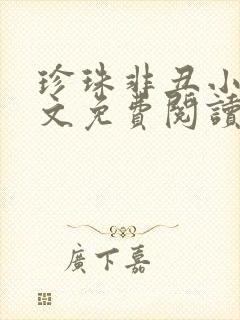 珍珠非丑小
文免費閱讀
廣下嘉